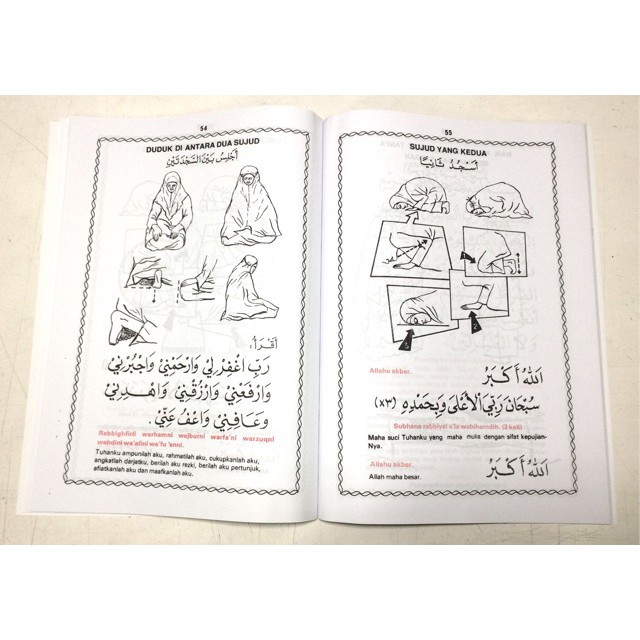 54
DUDUK DI ANTARA DUA SUJUD
اَجْلِسُ بَيْنَ السَّجْدَتَيْنِ
اَقْرَأُ:
رَبِّ اغْفِرْلِيْ وَارْحَمْنِيْ وَاجْبُرْنِيْ
وَارْفَعْنِيْ وَارْزُقْنِيْ وَاهْدِنِيْ
وَعَافِنِيْ وَاعْفُ عَنِّيْ.
Rabbighfirli warhamni wajburni warfa'ni warzuqni
wahdini wa'afini wa'fu 'anni.
Tuhanku ampunilah aku, rahmatilah aku, cukupkanlah aku,
angkatlah darjatku, berilah aku rezki, berilah aku pertunjuk,
afiatkanlah aku dan maafkanlah aku.
55
SUJUD YANG KEDUA
اَسْجُدُ ثَانِيًا
Allahu akbar.
اَللهُ اَكْبَرُ
سُبْحَانَ رَبِّيَ الْأَعْلَى وَبِحَمْدِهِ (×٣)
Subhana rabbiyal a'la wabihamdih. (3 kali)
Maha suci Tuhanku yang maha mulia dengan sifat kepujian-
Nya.
Allahu akbar.
اَللهُ اَكْبَرُ
Allah maha besar.